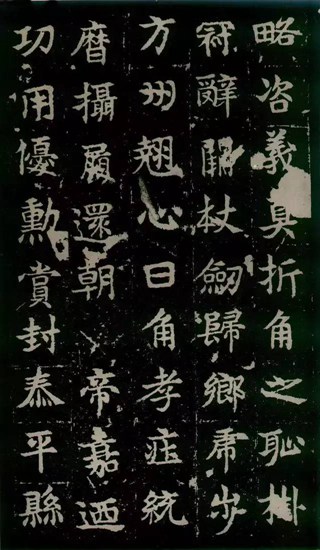 略咨義具折角之恥掛
冠辭闕杖劒歸鄉虎步
方州翹心日角孝莊統
曆攝履還朝 帝嘉迺
功用優勳賞封泰平縣